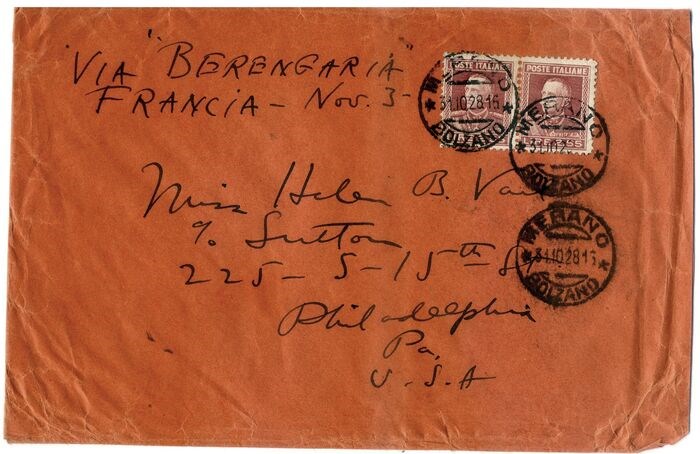 VIA "BERENGARIA"
FRANCIA - Nov. 3-
POSTE ITALIANE
POSTE ITALIANE
MERANO
31.10.28.16
BOLZANO
MERANO
BOLZANO
MERANO
31.10.28.16
BOLZANO
Miss Helen B. Vail
% Sutton
225-S-15th St
Philadelphia
Pa.
U.S.A